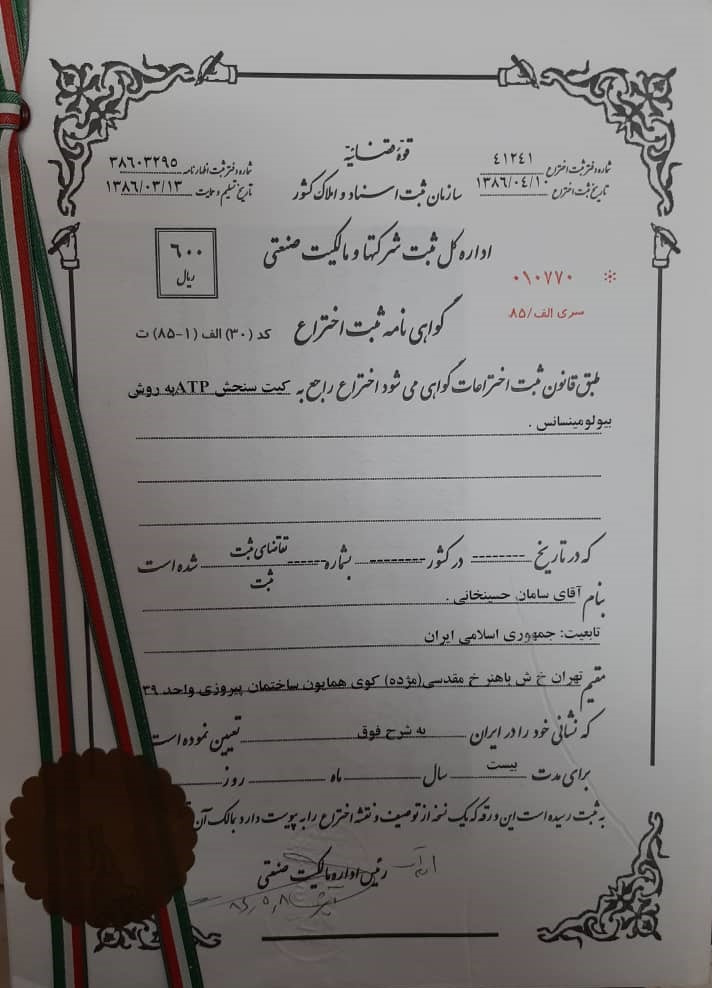 قوهٔ قضائیه
سازمان ثبت اسناد و املاک کشور
شماره دفتر ثبت اختراع ٤١٢٤١
تاریخ ثبت اختراع ١٣٨٦/٠٤/١٠
شماره دفتر ثبت اظهارنامه ٣٨٦٠٣٢٩٥
تاریخ تسلیم و حمایت ١٣٨٦/٠٣/١٣
اداره کل ثبت شرکتها و مالکیت صنعتی
٦٠٠
ریال
٠١٠٧٧٠
سری الف/٨٥
گواهی نامه ثبت اختراع
کد (٣٠) الف (١-٨٥) ت
طبق قانون ثبت اختراعات گواهی می شود اختراع راجع به کیت سنجش ATP به روش
بیولومینسانس .
که در تاریخ -------- در کشور -------- بشماره ------ تقاضای ثبت شده است
ثبت
بنام آقای سامان حسینخانی .
تابعیت: جمهوری اسلامی ایران
مقیم تهران خ ش باهنر خ مقدسی(مژده) کوی همایون ساختمان پیروزی واحد ٣٩
که نشانی خود را در ایران به شرح فوق تعیین نموده است
برای مدت بیست سال ------ ماه ------ روز
به ثبت رسیده است این ورقه که یک نسخه از توصیف و نقشه اختراع را به پیوست دارد بمالک آن
رئیس اداره مالکیت صنعتی